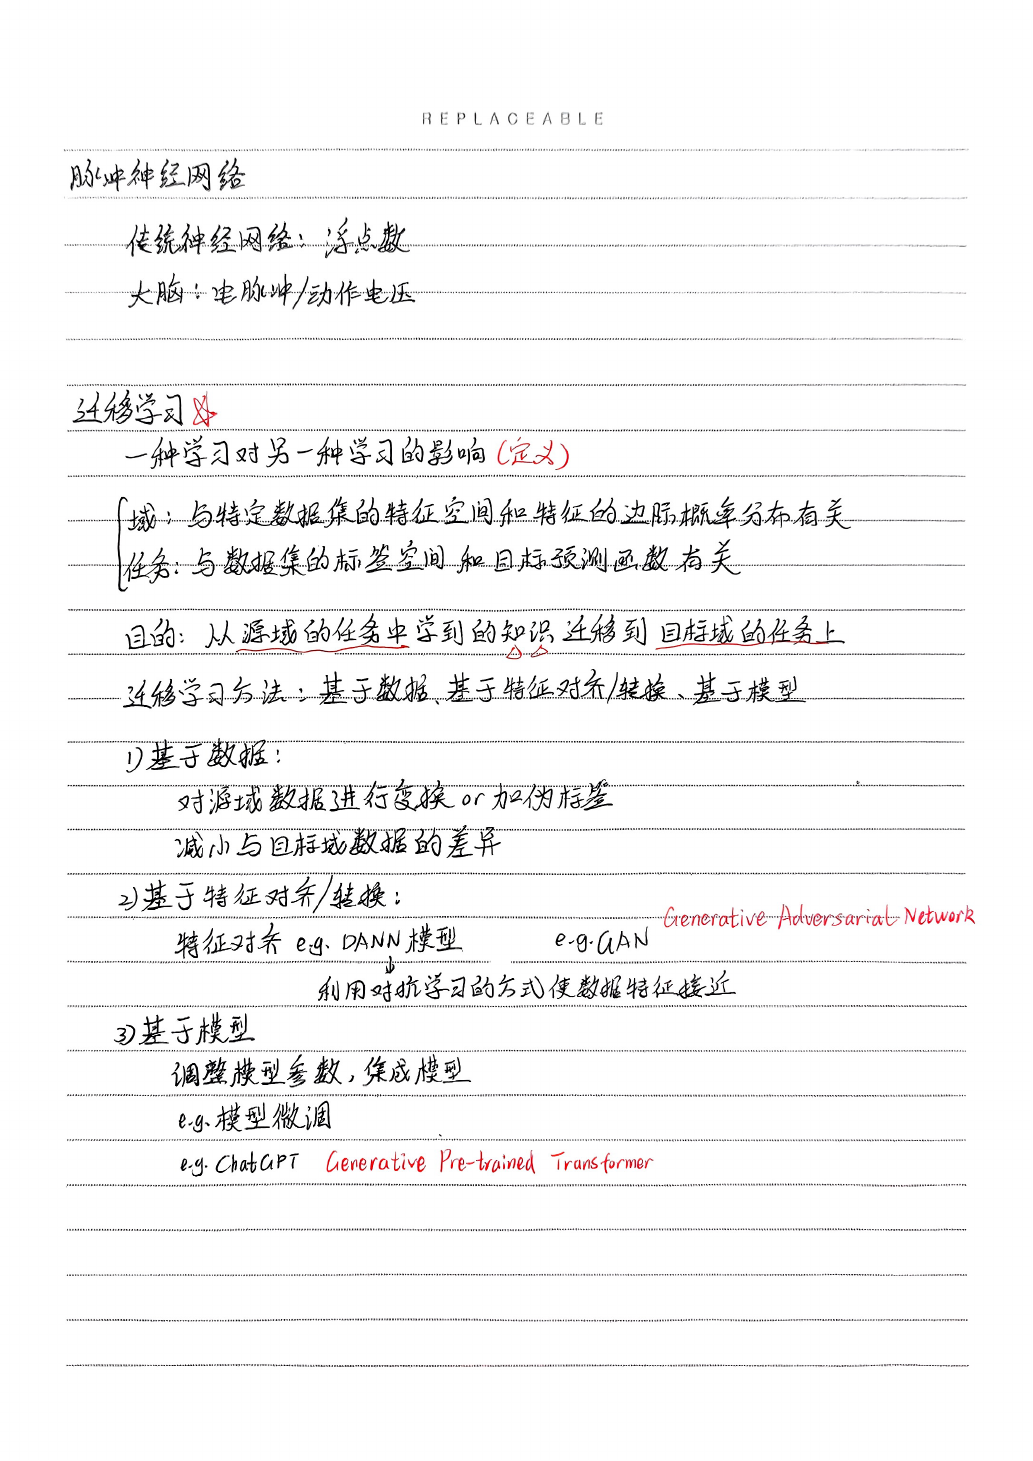 REPLACEABLE
脉冲神经网络
传统神经网络：浮点数
大脑：电脉冲/动作电压
迁移学习
一种学习对另一种学习的影响（定义）
域：与特定数据集的特征空间和特征的边际概率分布有关
任务：与数据集的标签空间和目标预测函数有关
目的：从源域的任务中学到的知识迁移到目标域的任务上
迁移学习方法：基于数据、基于特征对齐/转换、基于模型
1)基于数据：
对源域数据进行变换or加伪标签
减小与目标域数据的差异
2)基于特征对齐/转换：
Generative Adversarial Network
特征对齐 e.g. DANN模型 e.g.GAN
利用对抗学习的方式使数据特征接近
3)基于模型
调整模型参数，集成模型
e.g.模型微调
e.g.ChatGPT Generative Pre-trained Transformer